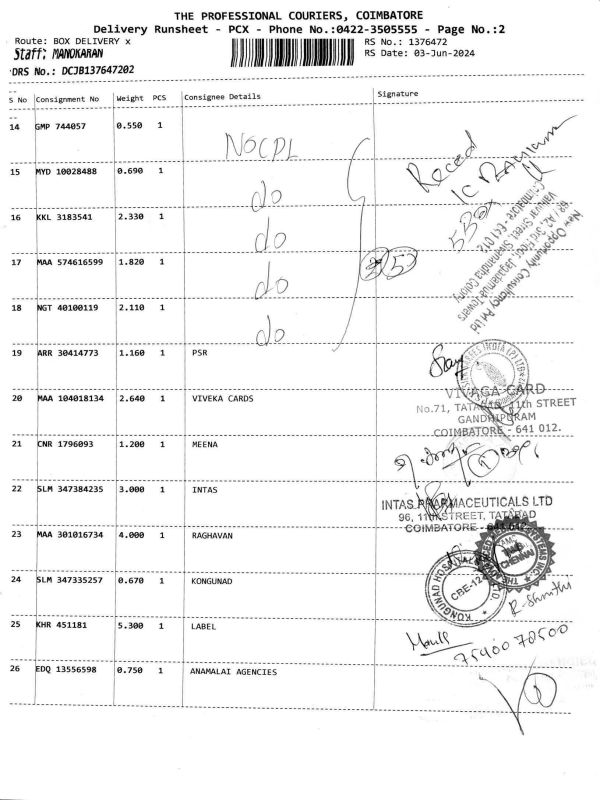 THE PROFESSIONAL COURIERS, COIMBATORE
Delivery Runsheet - PCX - Phone No.:0422-3505555 - Page No.:2
Route: BOX DELIVERY x
RS No.: 1376472
Staff: MANOKARAN
RS Date: 03-Jun-2024
DRS No.: DCJB137647202
S No Consignment No Weight PCS Consignee Details Signature
14 GMP 744057 0.550 1 NOCPL
15 MYD 10028488 0.690 1 do
16 KKL 3183541 2.330 1 do
17 MAA 574616599 1.820 1 do
18 NGT 40100119 2.110 1 do
Reced
5 Box
New Opportunity Consultancy Pvt Ltd
Coimbatore - 641 012.
19 ARR 30414773 1.160 1 PSR
20 MAA 104018134 2.640 1 VIVEKA CARDS
VIVAGA CARD
No.71, TATABAD, 11th STREET
GANDHIPURAM
COIMBATORE - 641 012.
21 CNR 1796093 1.200 1 MEENA
22 SLM 347384235 3.000 1 INTAS
INTAS PHARMACEUTICALS LTD
96, 11th STREET, TATABAD
COIMBATORE - 641 012
23 MAA 301016734 4.000 1 RAGHAVAN
CHENNAI
24 SLM 347335257 0.670 1 KONGUNAD
KONGUNAD HOSPITAL
CBE-12
25 KHR 451181 5.300 1 LABEL
75400 78500
26 EDQ 13556598 0.750 1 ANAMALAI AGENCIES